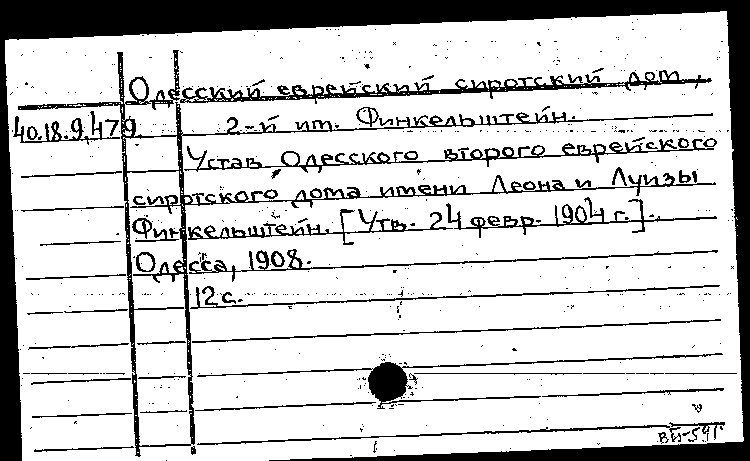 Одесский еврейский сиротский дом,
40.18.9.479
2-й им. Финкельштейн.
Устав Одесского второго еврейского
сиротского дома имени Леона и Луизы
Финкельштейн. [Утв. 24 февр. 1904 г.].
Одесса, 1908.
12 с.